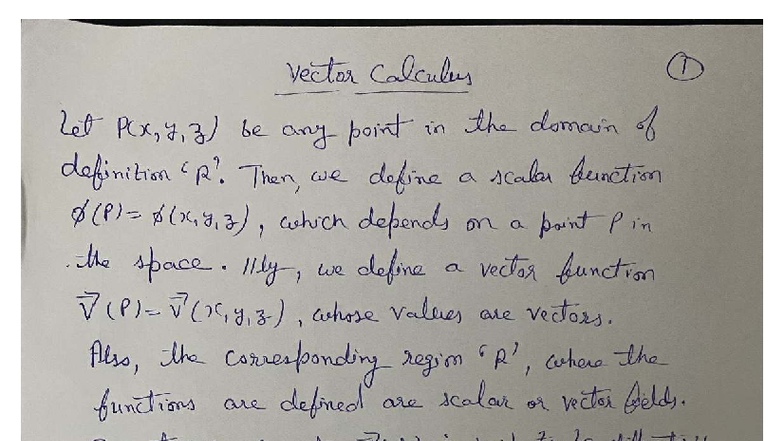 Vector Calculus
1
Let P(x, y, z) be any point in the domain of
definition 'R'. Then, we define a scalar function
ϕ(P) = ϕ(x, y, z), which depends on a point P in
the space. llly, we define a vector function
V⃗(P) = V⃗(x, y, z), whose values are vectors.
Also, the corresponding region 'R', where the
functions are defined are scalar or vector fields.